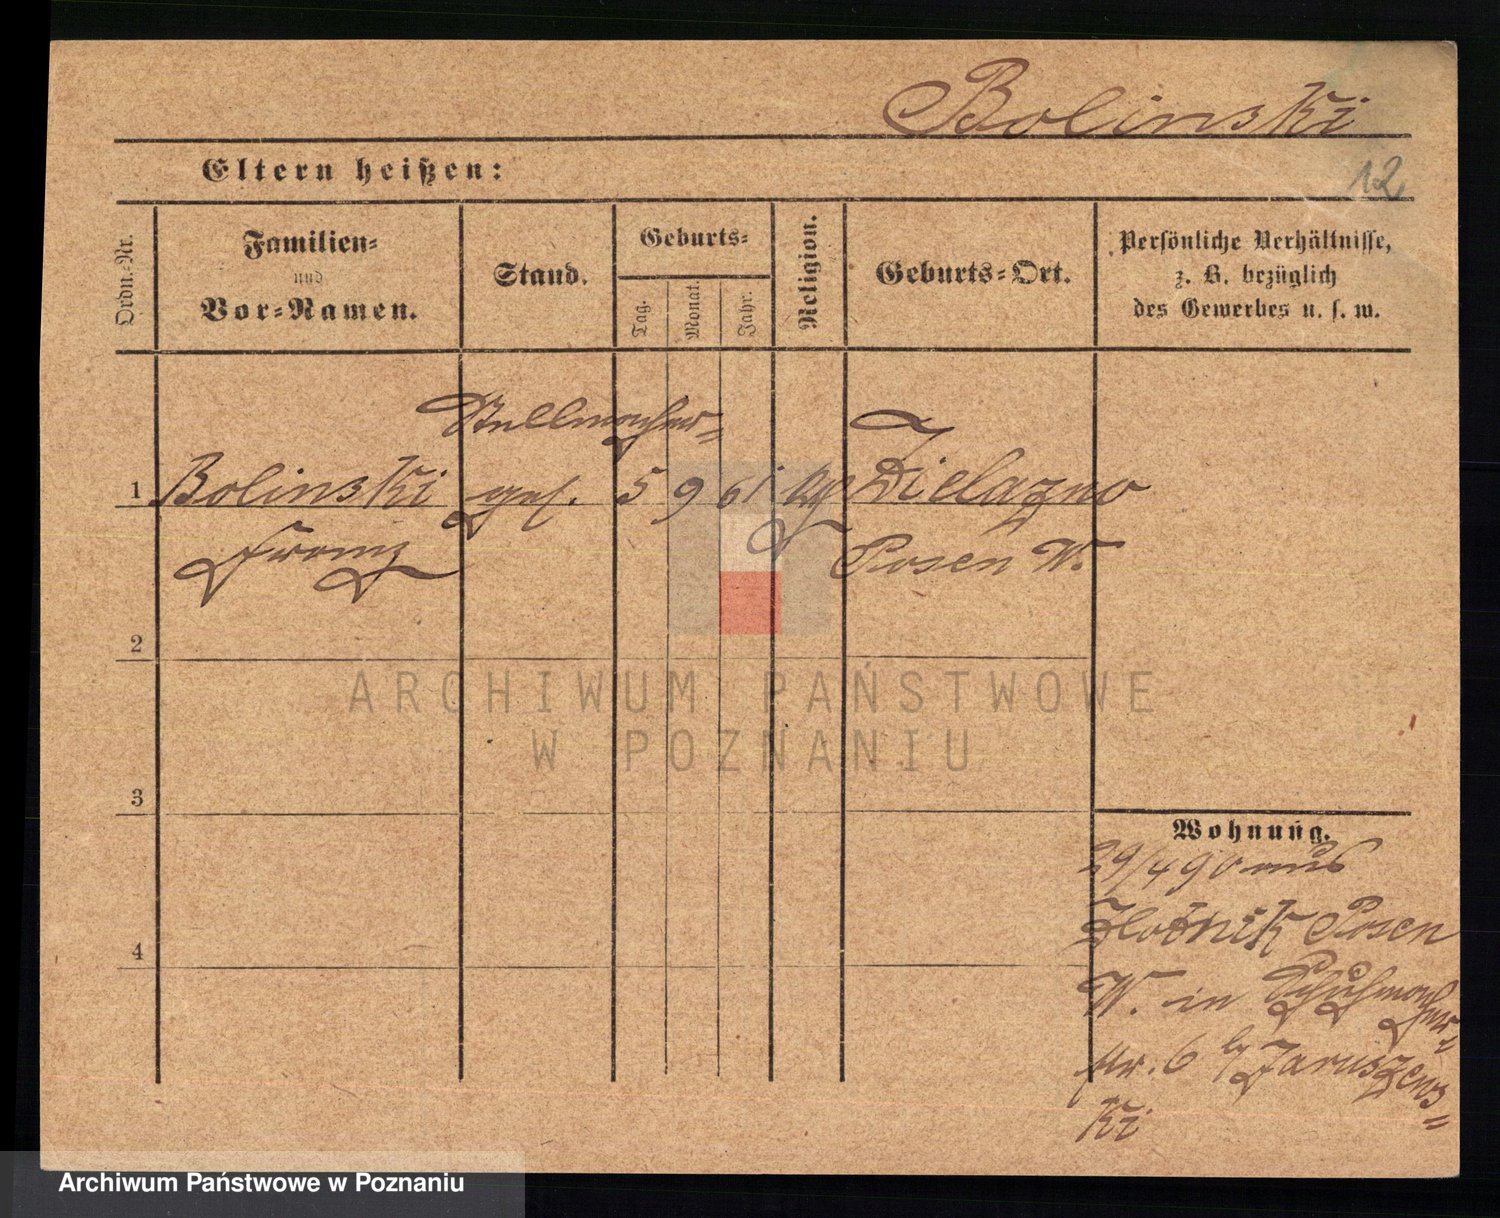 Bolinski
Eltern heißen:
12
Ordn.-Nr.
Familien-
und
Vor-Namen.
Stand.
Geburts-
Tag.
Monat.
Jahr.
Religion.
Geburts-Ort.
Persönliche Verhältnisse,
z. B. bezüglich
des Gewerbes u. s. w.
Stellmacher-
1 Bolinski ges. 5 9 61 Zielazno
Franz Posen W.
2
ARCHIWUM PAŃSTWOWE
W POZNANIU
3
Wohnung.
29/4 90 aus
Zlotnik Posen
W. in Schuhmacher-
str. 6 b/ Jaruszens-
ki
4
Archiwum Państwowe w Poznaniu